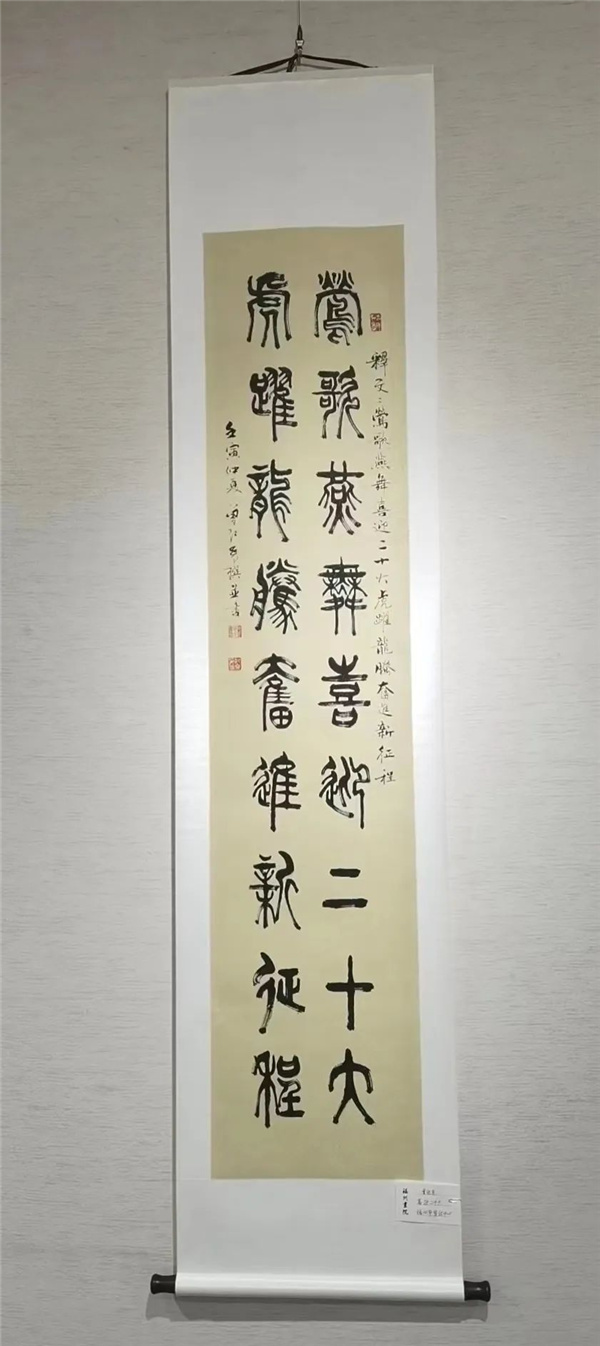 釋文：鶯歌燕舞喜迎二十大虎躍龍騰奮進新征程
鶯歌燕舞喜迎二十大
虎躍龍騰奮進新征程
壬寅仲夏 撰並書
福州畫院